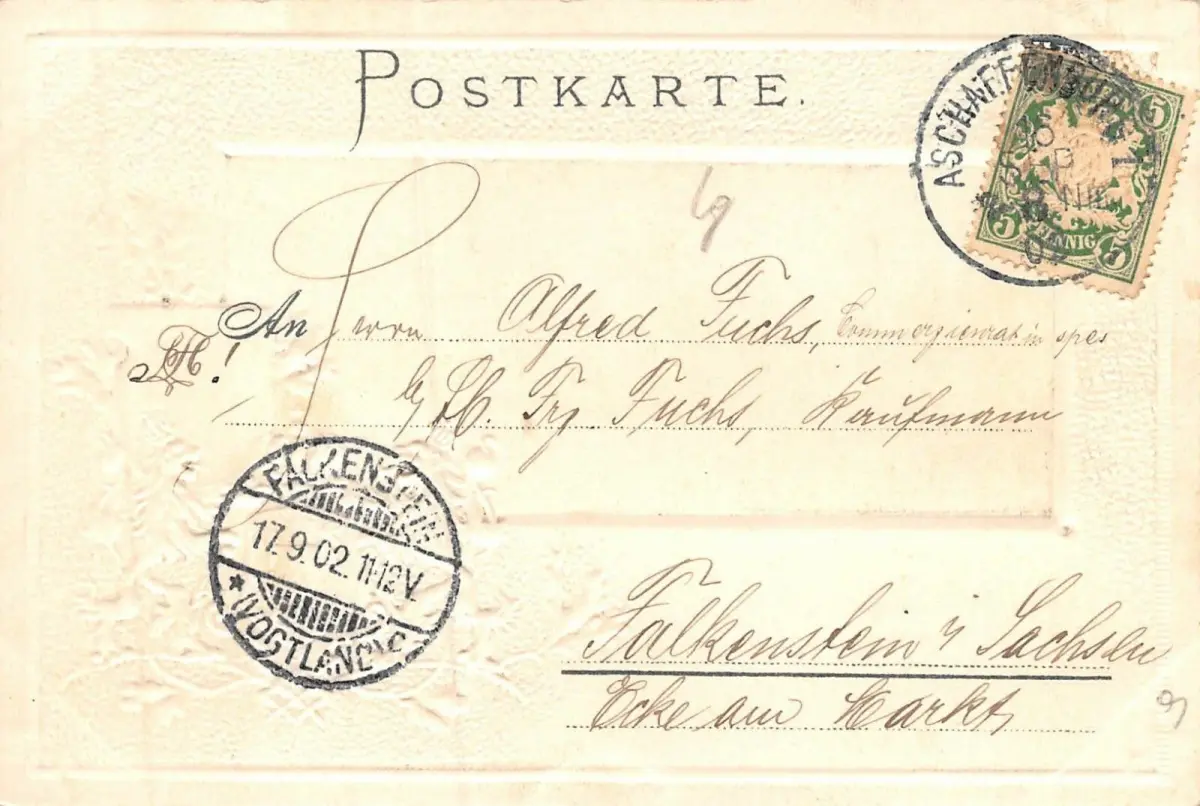 POSTKARTE.
ASCHAFFENBURG
5
PFENNIG
5 5
An Herrn Alfred Fuchs, Commerzienrat in spes
Frz. Fuchs, Kaufmann
FALKENSTEIN
17.9.02. 11-12V.
* (VOGTLAND) c
Falkenstein i/ Sachsen
Ecke am Markt